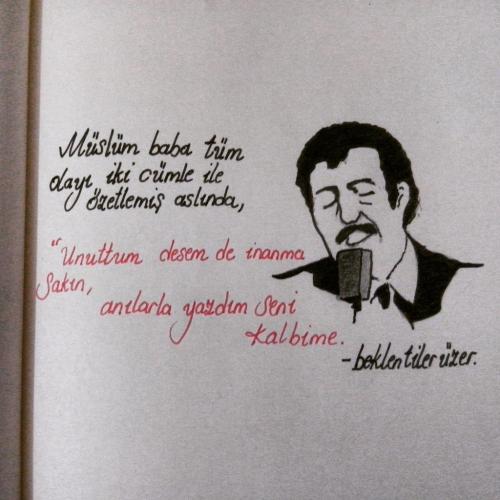 Müslüm baba tüm
olayı iki cümle ile
özetlemiş aslında,
"Unuttum desem de inanma
sakın,
anılarla yazdım seni
kalbime.
-beklentilerüzer.